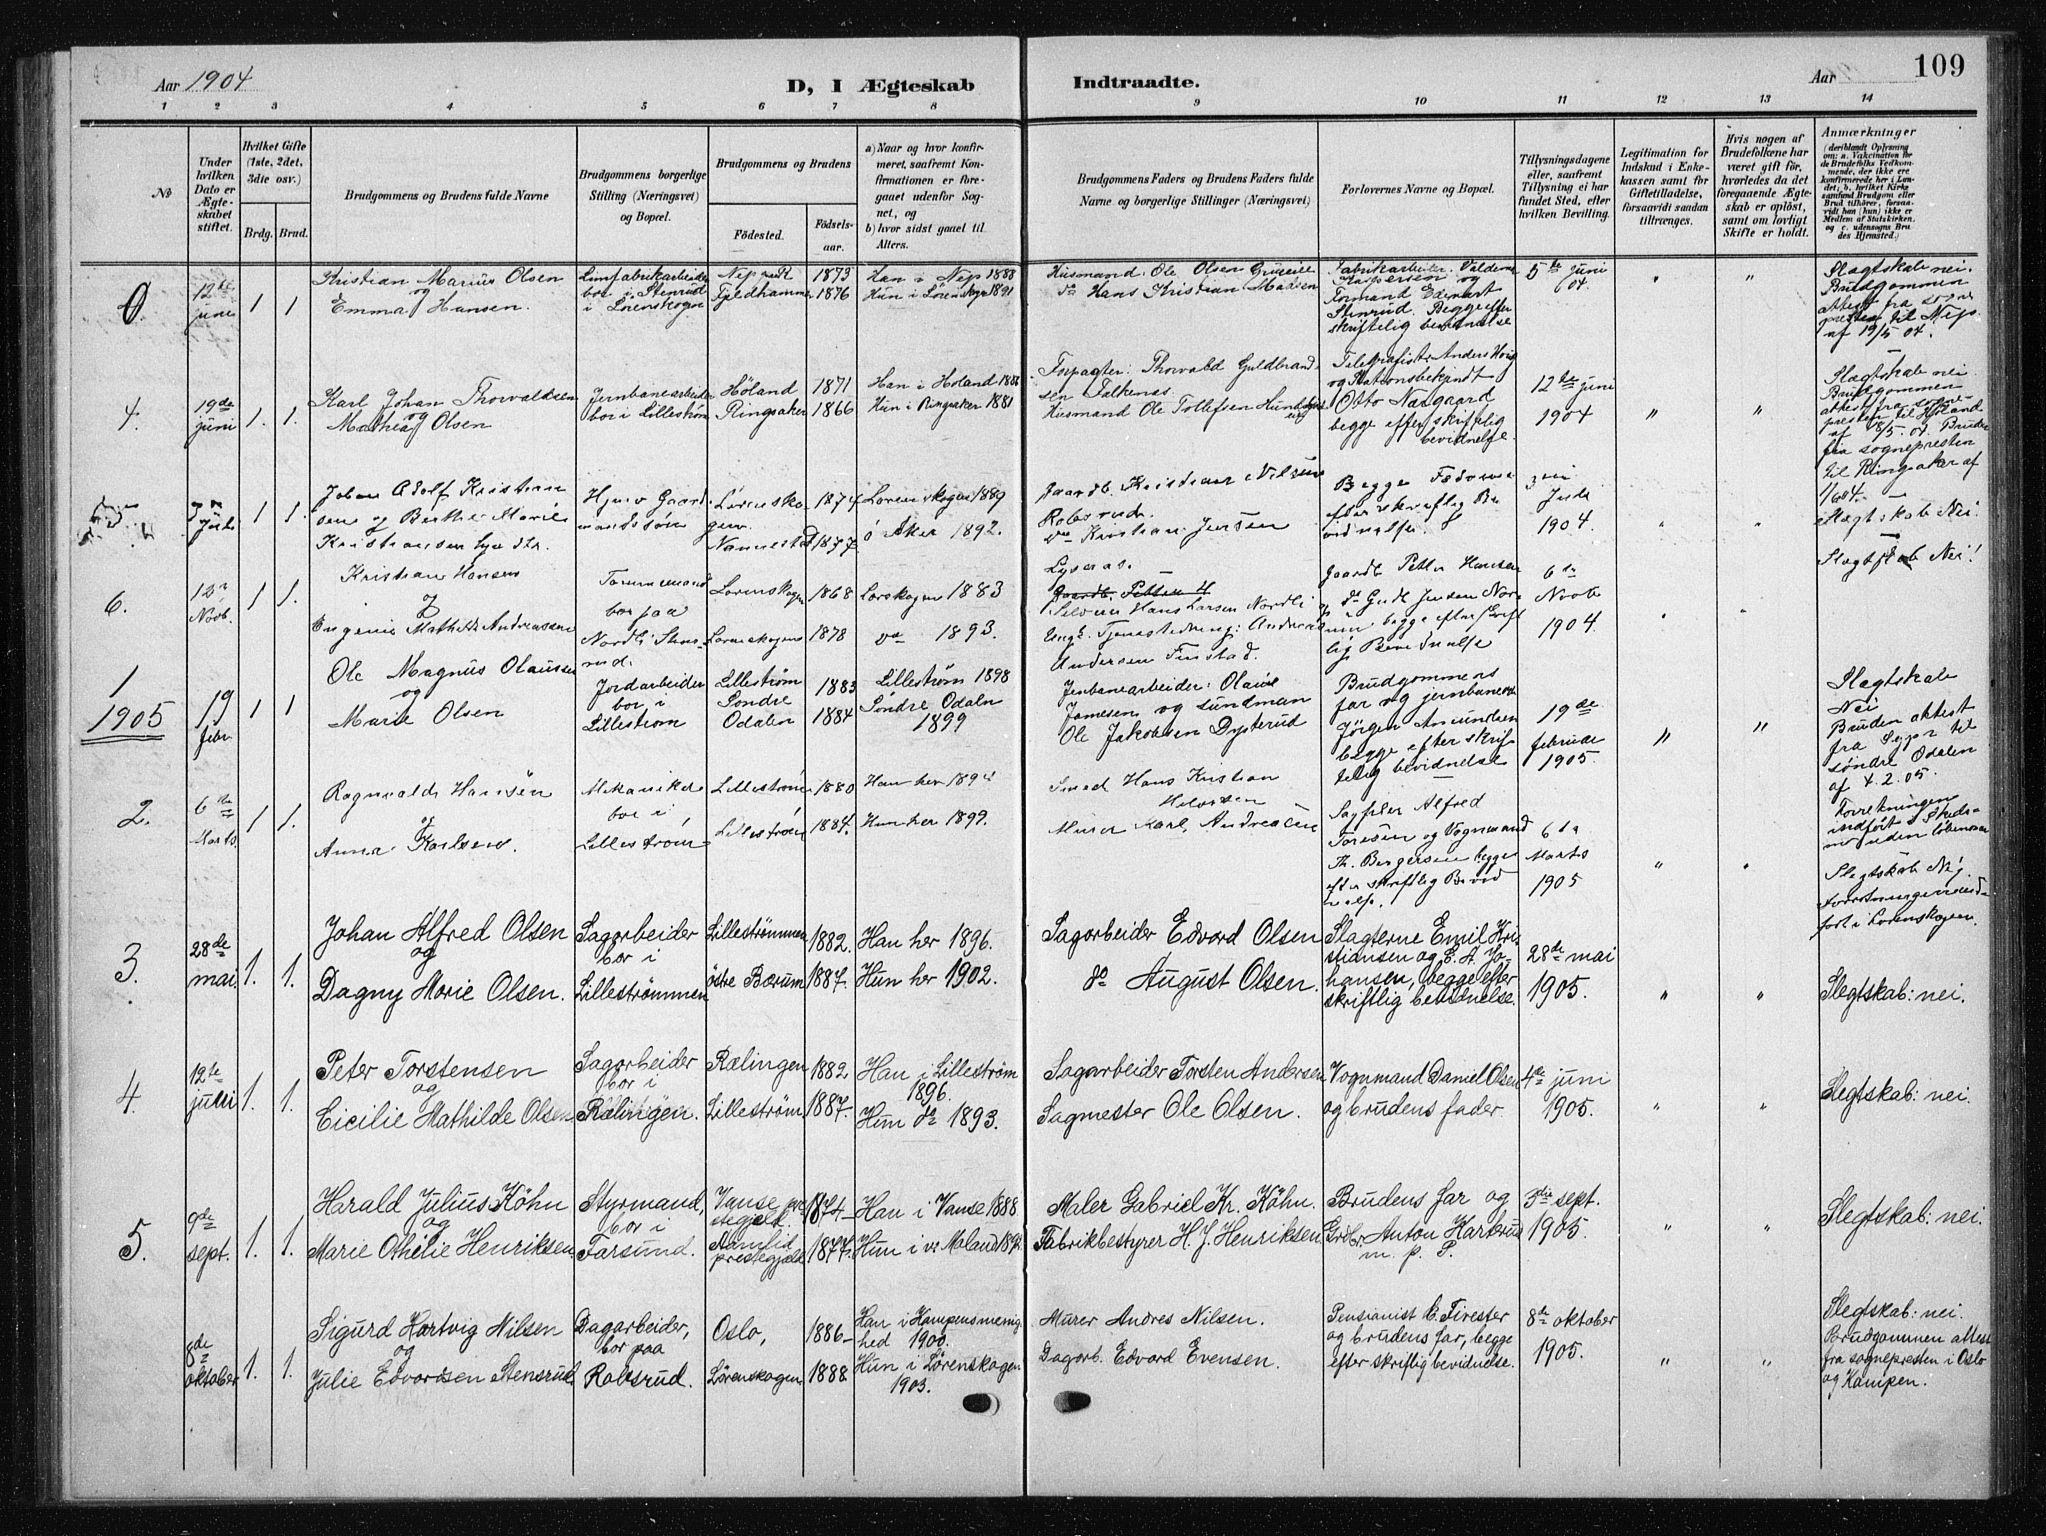 109
Aar 1904
D, I Ægteskab
Indtraadte.
Aar
1 2 3 4 5 6 7 8 9 10 11 12 13 14
No
Under hvilken Dato er Ægteskabet stiftet.
Hvilket Gifte (1ste, 2det, 3die osv.)
Brdg. Brud.
Brudgommens og Brudens fulde Navne
Brudgommens borgerlige Stilling (Næringsvei) og Bopæl.
Brudgommens og Brudens
Fødested.
Fødselsaar.
a) Naar og hvor konfirmeret, saafremt Konfirmationen er foregaaet udenfor Sognet, og
b) hvor sidst gaaet til Alters.
Brudgommens Faders og Brudens Faders fulde Navne og borgerlige Stillinger (Næringsvei)
Forlovernes Navne og Bopæl.
Tillysningsdagene eller, saafremt Tillysning ei har fundet Sted, efter hvilken Bevilling.
Legitimation for Indskud i Enkekassen samt for Giftetilladelse, forsaavidt saadan tiltrænges.
Hvis nogen af Brudefolkene har været gift før, hvorledes da det foregaaende Ægteskab er opløst, samt om lovligt Skifte er holdt.
Anmærkninger
(deriblandt Oplysning om: a. Vakcination for de Brudefolks Vedkommende, der ikke ere konfirmerede her i Landet, b. hvilket Kirkesamfund Brudgom eller Brud tilhører, forsaavidt han (hun) ikke er Medlem af Statskirken, og c. udensogns Brudes Hjemsted.)
12te juni
1 1
Kristian Marius Olsen
og
Emma Hansen.
Limfabrikarbeider
bor i Stenrud
i Lørenskogn
Fjeldhammer
1873
1876
Han i Nip 1888
Hun i Lørenskogn 1891
Husmand: Ole Olsen
do Hans Kristian Madsen
Fabrikarbeider Valdemar
Kaspersen og
Formand Edevart
Stenrud. Begge efter
skriftelig bevidnelse
5te juni
04
" "
Slegtskab nei.
Brudgommen
attest fra sogne
presten til Nip
af 19/5 04.
4.
19de juni
1. 1.
Karl Johan Thorvaldsen
og
Mathea Olsen
Jernbanearbeider
bor i Lillestrøm
Høland
Ringsaker
1871
1866
Han i Høland 1886
Hun i Ringsaker 1881
Forpagter: Thorvald Guldbrand-
sen Falkenas
Husmand Ole Tollefsen
Telegrafist Anders Hoig
og Stationsbetjendt
Otto Næsgaard
begge efter skriftlig
bevidnelse.
12te juni
1904
" "
Slegtskab nei
Brudgommen
attest fra sogne-
presten til Høland
af 18/5. 04. Bruden
fra sognepresten
til Ringsaker af
1/6 04.
1 1.
Johan Adolf Kristian
sen og Berthe Marie
Kristiansen
Gaard-
mandssøn
Lørensko
gen.
Nannestad
1874
1877
Lørenskogen 1889
ø Aker 1892.
Gaardb. Kristian Nilsen
Robsrud.
do Kristian Jensen
Begge Fædrene
efter skriftlig Be
vidnelse.
Juli
1904.
Slegtskab Nei!
6.
12te Novb.
1 1.
Kristian Hansen
og
Eugenie Mathilde Andreassen
Tømmermand
bor paa
Nordli Stens-
rud.
Lørenskogn
Lørenskogen
1868
1878
Lørskogen 1883
do 1893.
Lyseras.
Gaardb. Petter H
Selveier Hans Larsen Nordli
Andersen Finstad.
Gaardb Petter Hansen
do Gudb Jensen
begge efter skrift
lig Bevidnelse
6te
Novb
1904.
Slegtskab Nei!
1
1905
19 febr.
1 1
Ole Magnus Olausen
og
Marie Olsen
Jordarbeider
bor i
Lillestrøm
Lillestrøm
Søndre
Odalen
1883
1884
Lillestrøm 1898
Søndre Odalen
1899
Jernbanearbeider: Olaus
Jamesen og sundman
Ole Jakobsen Dysterud
Brudgommens
far og jernbanearb
Jørgen Amundsen
begge efter skrif-
telig bevidnelse
19de
februar
1905.
" "
Slegtskab
Nei
Bruden attest
fra Sgpr til
søndre Odalen
af 4.2.05.
2.
6te Marts
1 1.
Ragnvald Hansen
og
Anna Karlsen.
Mekaniker
bor i
Lillestrøm
Lillestrøm
Lillestrøm
1880
1884.
Han her 1894
Hun her 1899.
Smed Hans Kristian
Halvorsen
Murer Karl Andreasen
Sagfiler Alfred
Toresen og Vognmand
Th. Bergersen begge
efter skriftlig Bevid
nelse.
6te
Marts
1905
Forretningen
indført i Skeds-
mo uden løbenumer
Slegtskab Nei.
Forretningen ind-
ført i Lørenskogen.
3.
28de mai
1. 1.
Johan Alfred Olsen
og
Dagny Marie Olsen.
Sagarbeider
bor i
Lillestrømmen
Lillestrømmen
østre Bærum
1882.
1887.
Han her 1896.
Hun her 1902.
Sagarbeider Edvard Olsen
do August Olsen.
Slagterne Emil Kri-
stiansen og E. A. Jo-
hansen, begge efter
skriftlig bevidnelse.
28de mai
1905.
" "
Slegtskab: nei.
4.
12te juni
1. 1.
Peter Torstensen
og
Cicilie Mathilde Olsen
Sagarbeider
bor i
Rælingen.
Rælingen
Lillestrøm
1882
1887.
Han i Lillestrøm
1896.
Hun do 1893.
Sagarbeider Torsten Andersen
Sagmester Ole Olsen.
Vognmand Daniel Olsen
og brudens fader.
4de juni
1905.
" "
Slegtskab: nei.
5.
9de sept.
1. 1.
Harald Julius Köhn
og
Marie Othelie Henriksen
Styrmand,
bor i
Farsund.
Vanse pre-
stegjeld.
prestegjeld
1874
1877.
Han i Vanse 1888
Hun i v. Moland 1892
Maler Gabriel Kr. Köhn.
Fabrikbestyrer H. J. Henriksen.
Brudens far og
Grdbr. Anton Karlsrud
m. p. P.
3die sept.
1905.
" "
Slegtskab: nei.
8de oktober
1. 1.
Sigurd Hartvig Nilsen
og
Julie Edvardsen Stensrud
Dagarbeider,
bor paa
Robsrud.
Oslo,
Lørenskogen
1886
1888
Han i Kampens menig
hed 1900.
Hun i Lørenskogen
1903.
Murer Andres Nilsen.
Dagarb. Edvard Evensen.
Pensionist C. Firester
og brudens far, begge
efter skriftlig bevidnelse.
8de oktober
1905.
" "
Slegtskab: nei.
Brudgommen attest
fra sognepresten i Oslo
og Kampen.